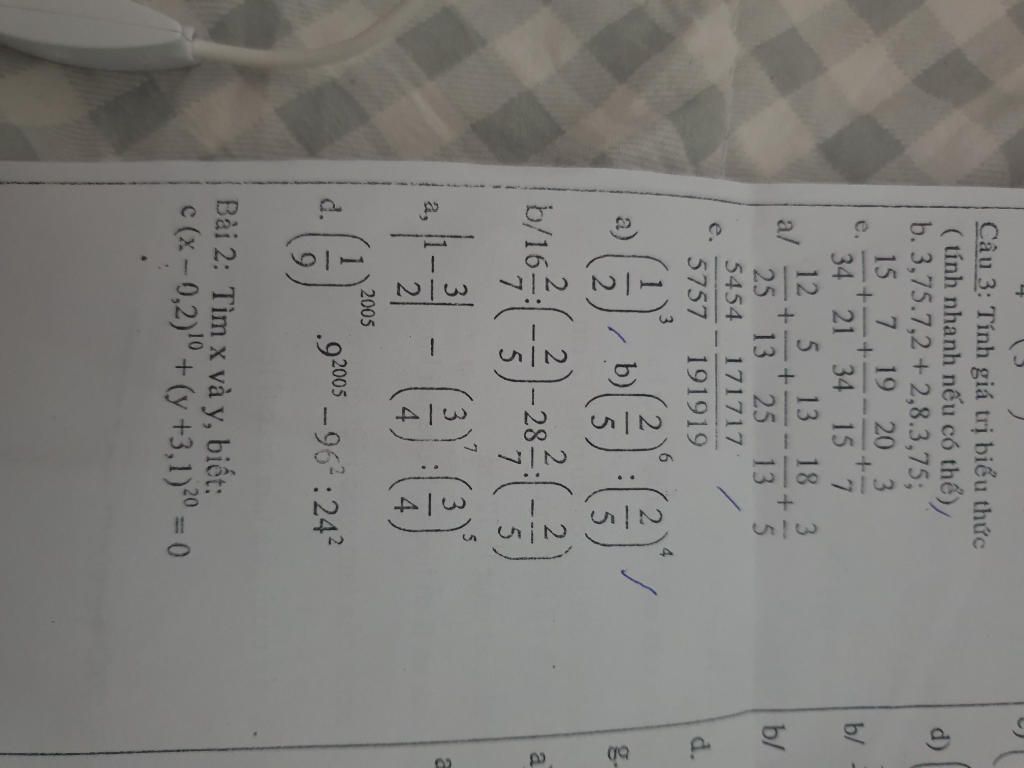 4 ( 3 )
Câu 3: Tính giá trị biểu thức
( tính nhanh nếu có thể)
b. 3,75.7,2 + 2,8.3,75;
e. 15/34 + 7/21 + 19/34 - 20/15 + 3/7
a/ 12/25 + 5/13 + 13/25 - 18/13 + 3/5
e. 5454/5757 - 171717/191919
a) (1/2)^3 b) (2/5)^6 : (2/5)^4
b/ 16 2/7 : (-2/5) - 28 2/7 : (-2/5)
a, |1 - 3/2| - (3/4)^7 : (3/4)^5
d. (1/9)^2005 .9^2005 - 96^2 : 24^2
Bài 2: Tìm x và y, biết:
c (x - 0,2)^10 + (y +3,1)^20 = 0
d)
b/
b/
d.
g.
a